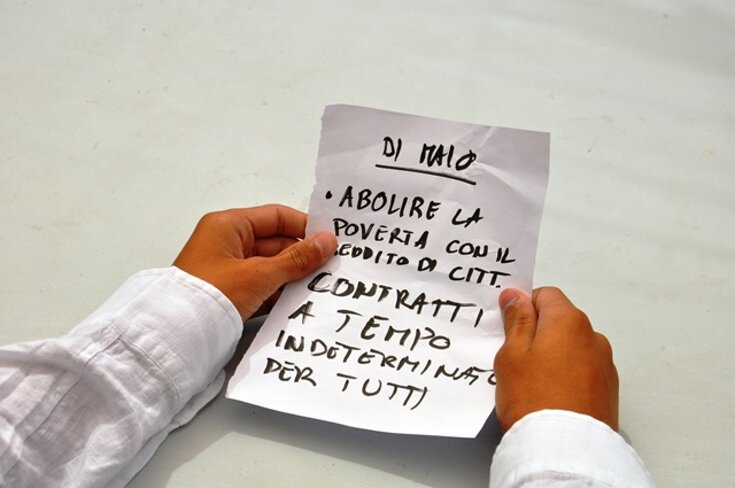 DI MAIO
• ABOLIRE LA
POVERTA CON IL
REDDITO DI CITT.
CONTRATTI
A TEMPO
INDETERMINATO
PER TUTTI